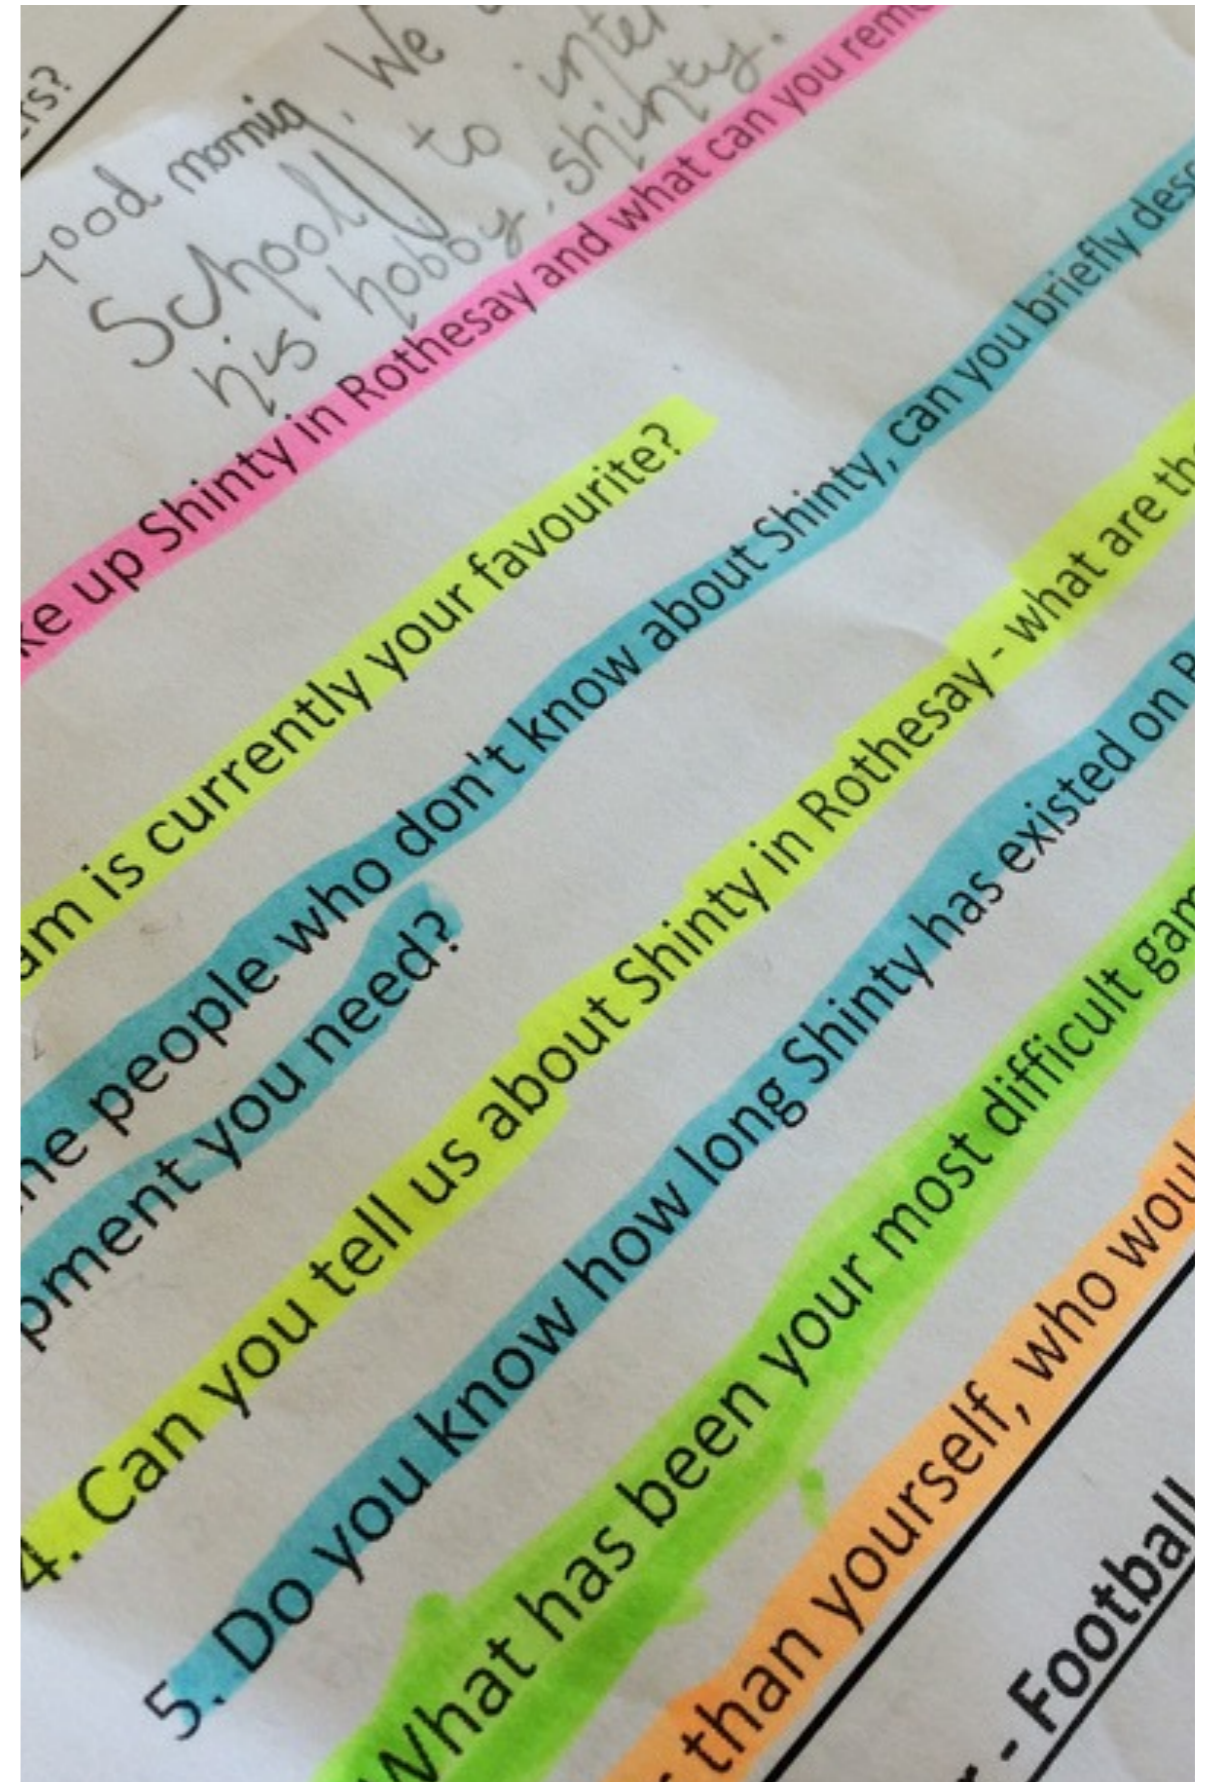 ers?
good mornig, We
School to inter
his hobby, shinty.
ke up Shinty in Rothesay and what can you reme
am is currently your favourite?
he people who don't know about Shinty, can you briefly desc
pment you need?
4. Can you tell us about Shinty in Rothesay - what are the
5. Do you know how long Shinty has existed on B
What has been your most difficult gam
r than yourself, who woul
r - Football